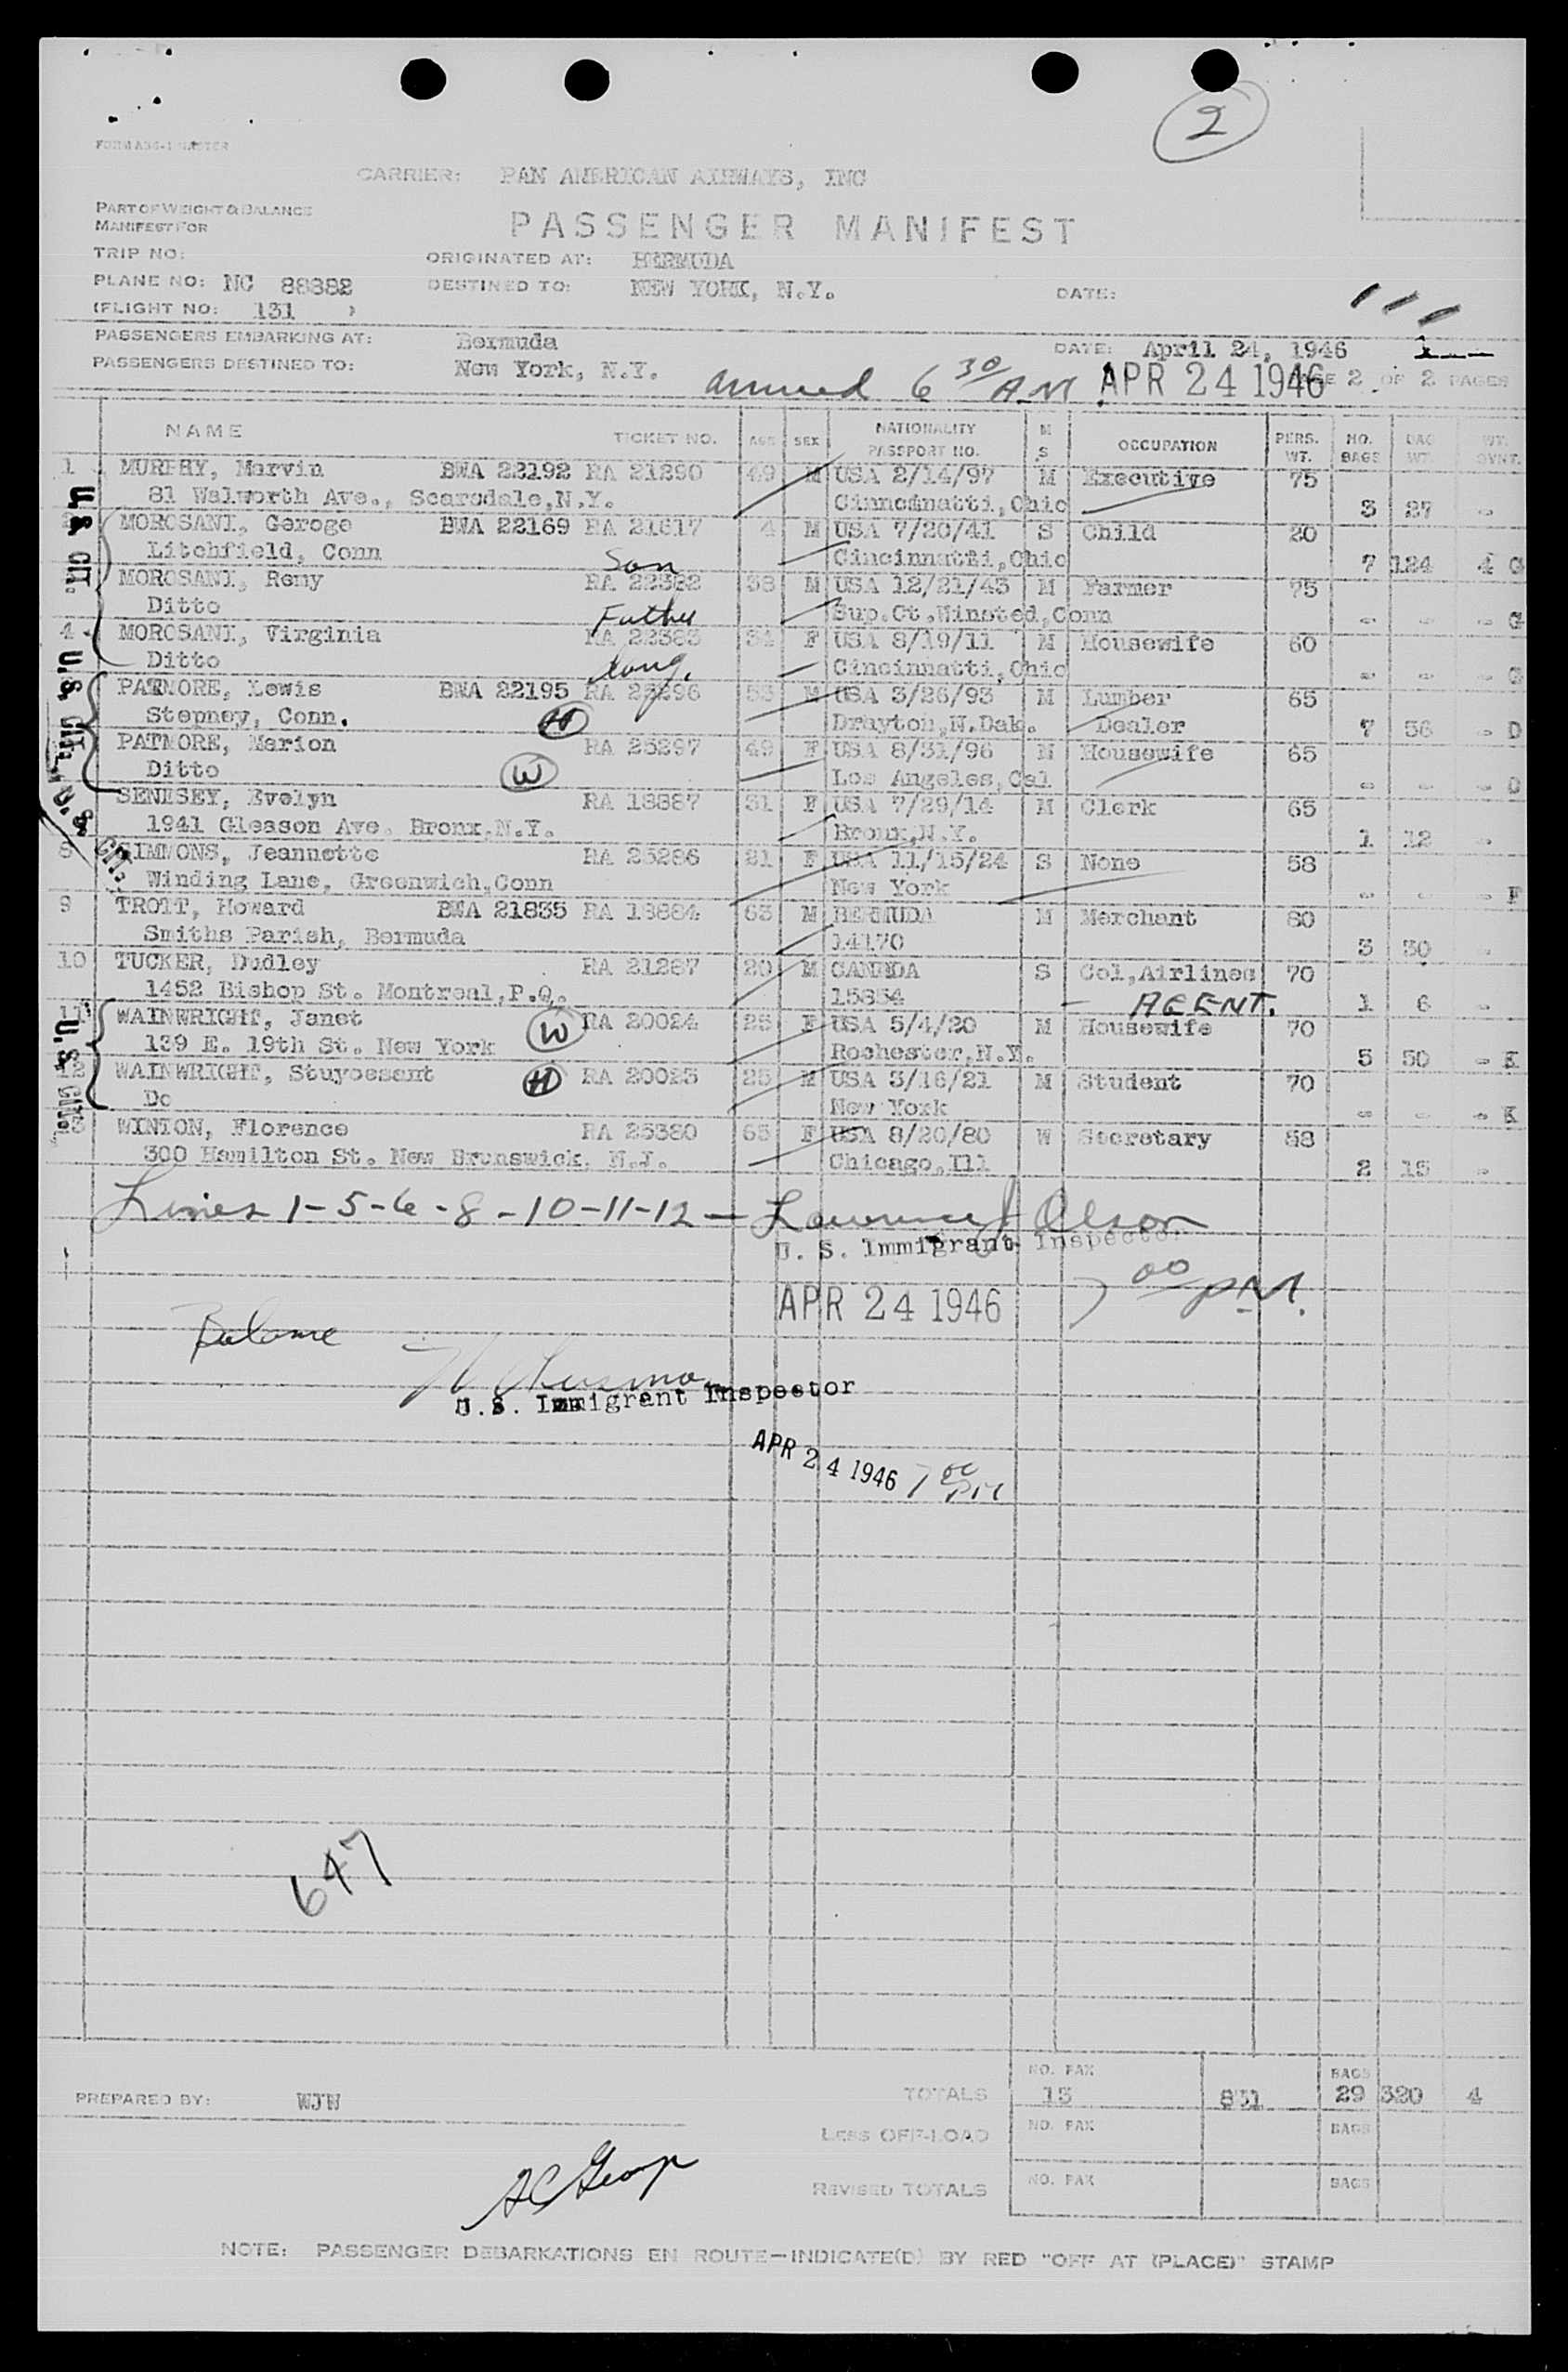 2
FORM A36-1 MASTER
CARRIER: PAN AMERICAN AIRWAYS, INC
PART OF WEIGHT & BALANCE
MANIFEST FOR
PASSENGER MANIFEST
TRIP NO:
ORIGINATED AT: BERMUDA
PLANE NO: NC 88882
DESTINED TO: NEW YORK, N.Y.
DATE:
(FLIGHT NO: 131 )
PASSENGERS EMBARKING AT: Bermuda
DATE: April 24, 1946
PASSENGERS DESTINED TO: New York, N.Y.
arrived 6 30 A.M. APR 24 1946 PAGE 2 OF 2 PAGES
NAME TICKET NO. AGE SEX NATIONALITY PASSPORT NO. M S OCCUPATION PERS. WT. NO. BAGS BAG WT. WT. OVNT.
1 MURPHY, Marvin BWA 22192 RA 21290 49 M USA 2/14/97 M Executive 75
81 Walworth Ave., Scarsdale,N.Y. Cinncinatti,Ohio 3 27 -
MOROSANI, Geroge BWA 22169 RA 21617 4 M USA 7/20/41 S Child 20
Litchfield, Conn Son Cincinnatti,Ohio 7 124 4 G
MOROSANI, Remy RA 22382 38 M USA 12/21/43 M Farmer 75
Ditto Father Sup.Ct.Winsted,Conn - - - G
4 MOROSANI, Virginia RA 22383 34 F USA 8/19/11 M Housewife 60
Ditto Cincinnatti,Ohio - - - G
PATMORE, Lewis BWA 22195 RA 25296 53 M USA 3/26/93 M Lumber 65
Stepney, Conn. H Drayton,N.Dak. Dealer 7 56 - D
PATMORE, Marion RA 25297 49 F USA 8/31/96 M Housewife 65
Ditto W Los Angeles,Cal - - - D
SENESEY, Evelyn RA 18887 31 F USA 7/29/14 M Clerk 65
1941 Gleason Ave. Bronx,N.Y. Bronx,N.Y. 1 12 -
8 SIMMONS, Jeannette RA 25286 21 F USA 11/15/24 S None 58
Winding Lane, Greenwich,Conn New York - - - F
9 TROTT, Howard BWA 21835 RA 18884 63 M BERMUDA M Merchant 80
Smiths Parish, Bermuda 14170 3 30 -
10 TUCKER, Dudley RA 21267 20 M CANADA S Col,Airlines 70
1452 Bishop St. Montreal,P.Q. 15854 - AGENT. 1 6 -
11 WAINWRIGHT, Janet W RA 20024 25 F USA 5/4/20 M Housewife 70
139 E. 19th St. New York Rochester,N.Y. 5 50 - K
12 WAINWRIGHT, Stuyvesant H RA 20025 25 M USA 3/16/21 M Student 70
Do New York - - - K
13 WINTON, Florence RA 25380 65 F USA 8/20/80 W Secretary 58
300 Hamilton St. New Brunswick, N.J. Chicago,Ill 2 15 -
U.S. CIT.
U.S. CIT.
U.S. CIT.
U.S. CIT.
Lines 1-5-6-8-10-11-12 - Lawrence J Olson
U. S. Immigrant Inspector
APR 24 1946 7 00 PM.
Balance
U.S. Immigrant Inspector
APR 24 1946 7 00 PM
647
PREPARED BY: WJW
TOTALS NO. PAX 13 831 BAGS 29 320 4
LESS OFF-LOAD NO. PAX BAGS
REVISED TOTALS NO. PAX BAGS
NOTE: PASSENGER DEBARKATIONS EN ROUTE—INDICATE(D) BY RED "OFF AT (PLACE)" STAMP